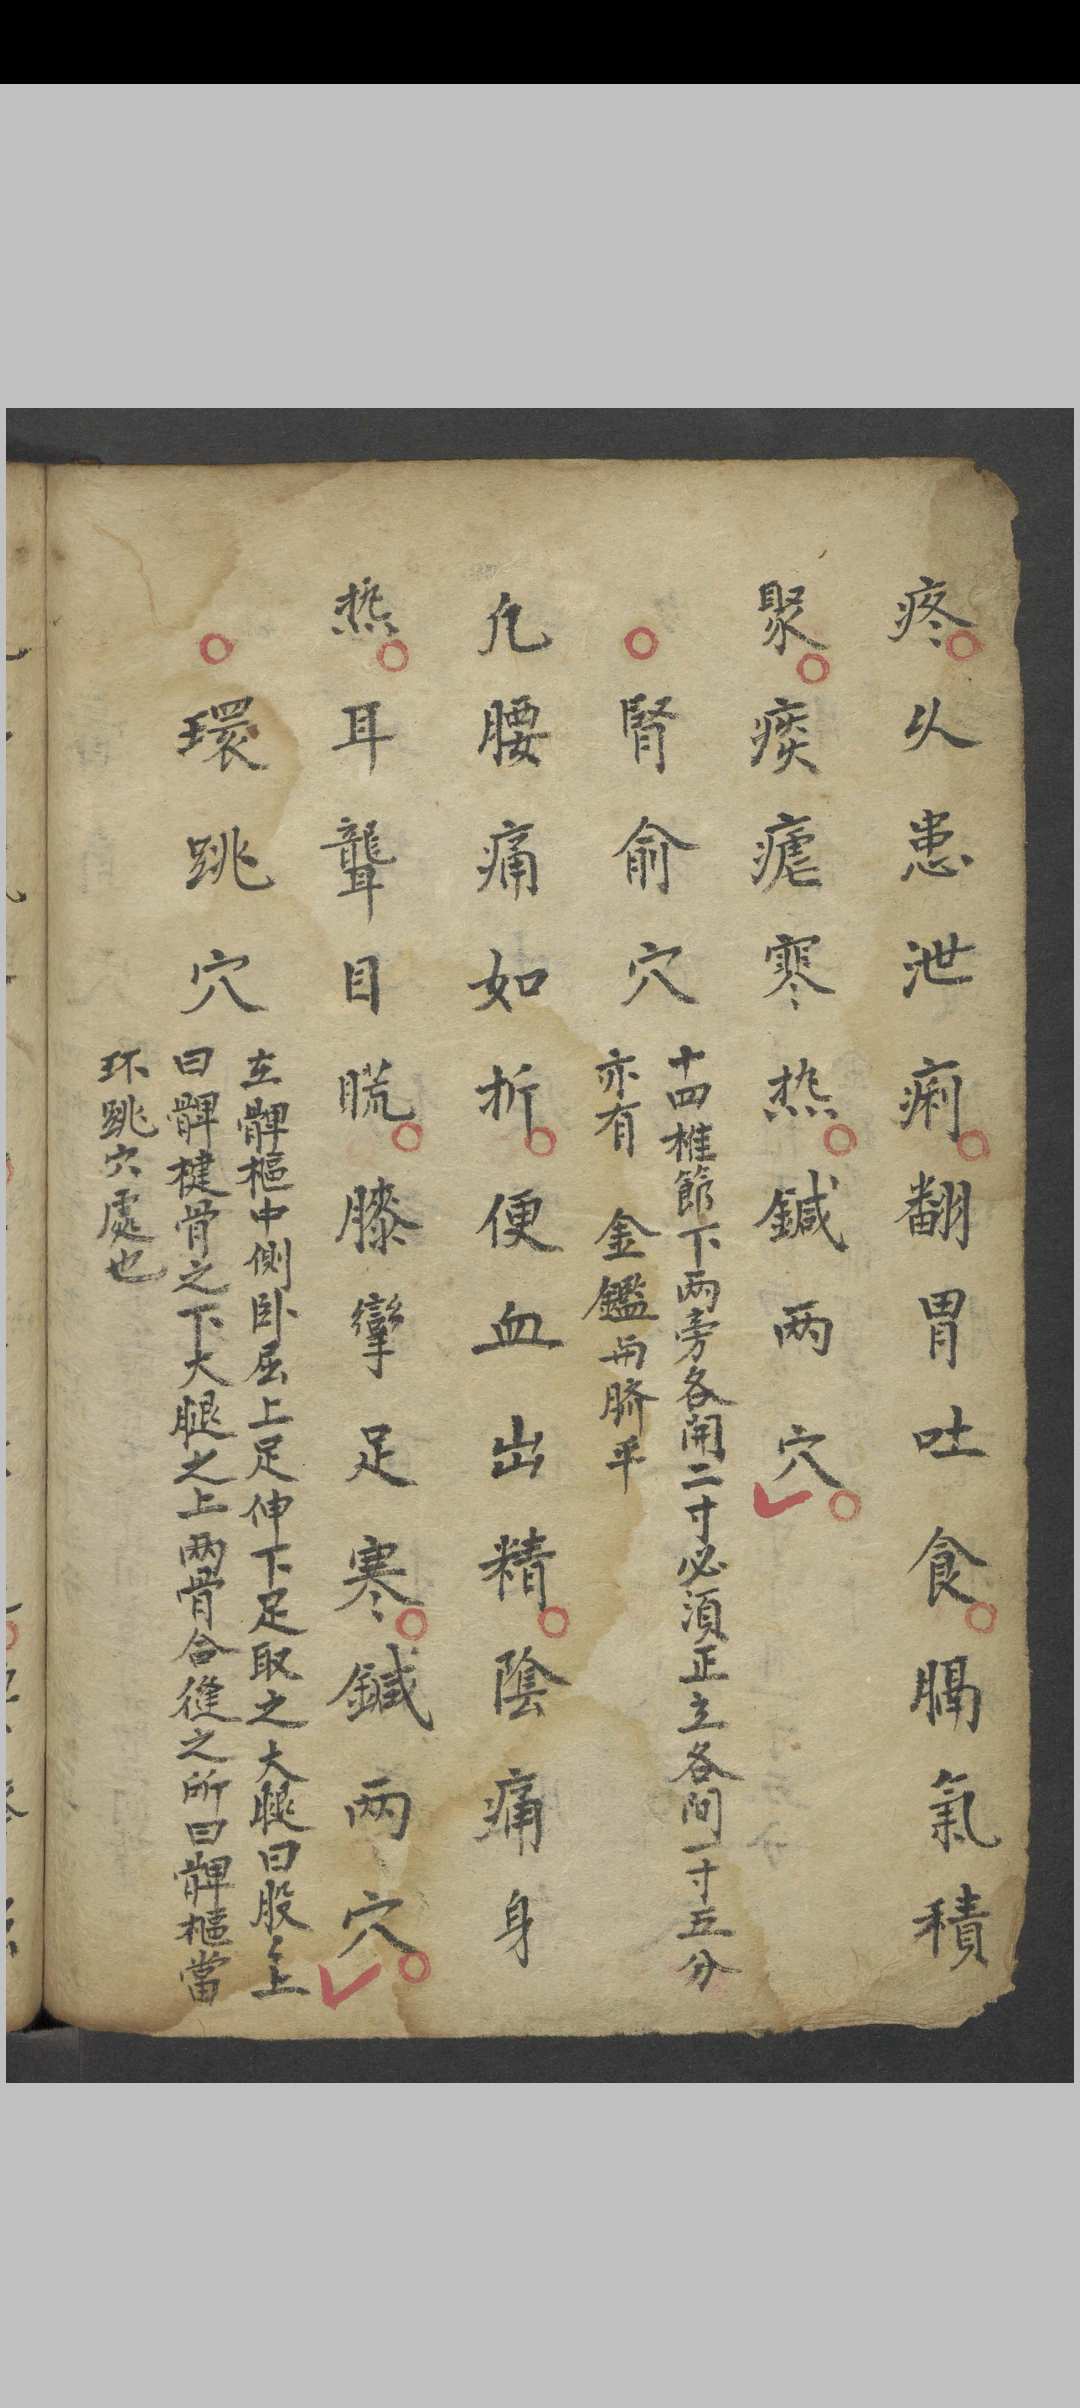 疼久患泄痢翻胃吐食膈氣積
聚痰瘧寒熱鍼两穴
腎俞穴
十四椎節下两旁各開二寸必須正立各間一寸五分
亦有 金鑑與臍平
凡腰痛如折便血出精陰痛身
热耳聾目䀮膝攣足寒鍼两穴
環跳穴
在髀樞中側卧屈上足伸下足取之大腿曰股之上
曰髀楗骨之下大腿之上两骨合縫之所曰髀樞當
环跳穴處也